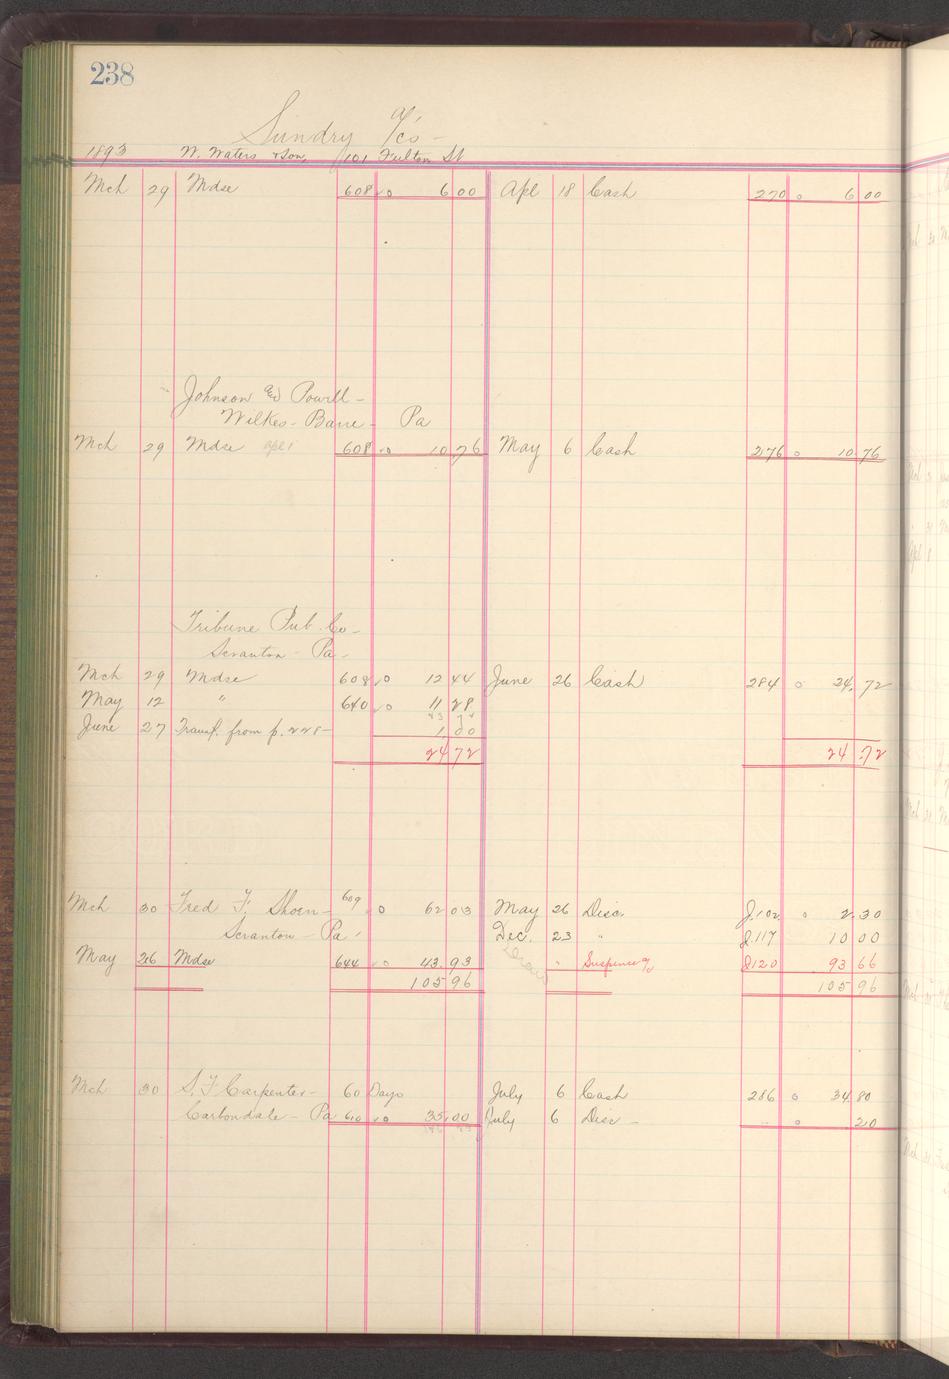 238
Sundry a/cs -
1893 W. Waters & Son, 101 Fulton St
Mch 29 Mdse 608 o 6 00 Apl 18 Cash 270 o 6 00
Johnson and Powell -
Wilkes-Barre - Pa
Mch 29 Mdse apl 1 608 o 10 76 May 6 Cash 276 o 10 76
Tribune Pub. Co -
Scranton - Pa -
Mch 29 Mdse 608 o 12 44 June 26 Cash 284 o 24 72
May 12 " 640 o 11 28
23 72
June 27 Transf. from p. 228 - 1 00
24 72 24 72
Mch 30 Fred F. Shoen - 609 o 62 03 May 26 Disc. J.102 o 2.30
Scranton - Pa - Dec. 23 " J.117 10 00
May 26 Mdse 644 o 43.93 " Suspense a/c J120 93 66
105 96 105 96
Mch 30 S. F. Carpenter - 60 Days July 6 Cash 286 o 34 80
Carbondale - Pa 610 o 35.00 July 6 Disc - " o 20